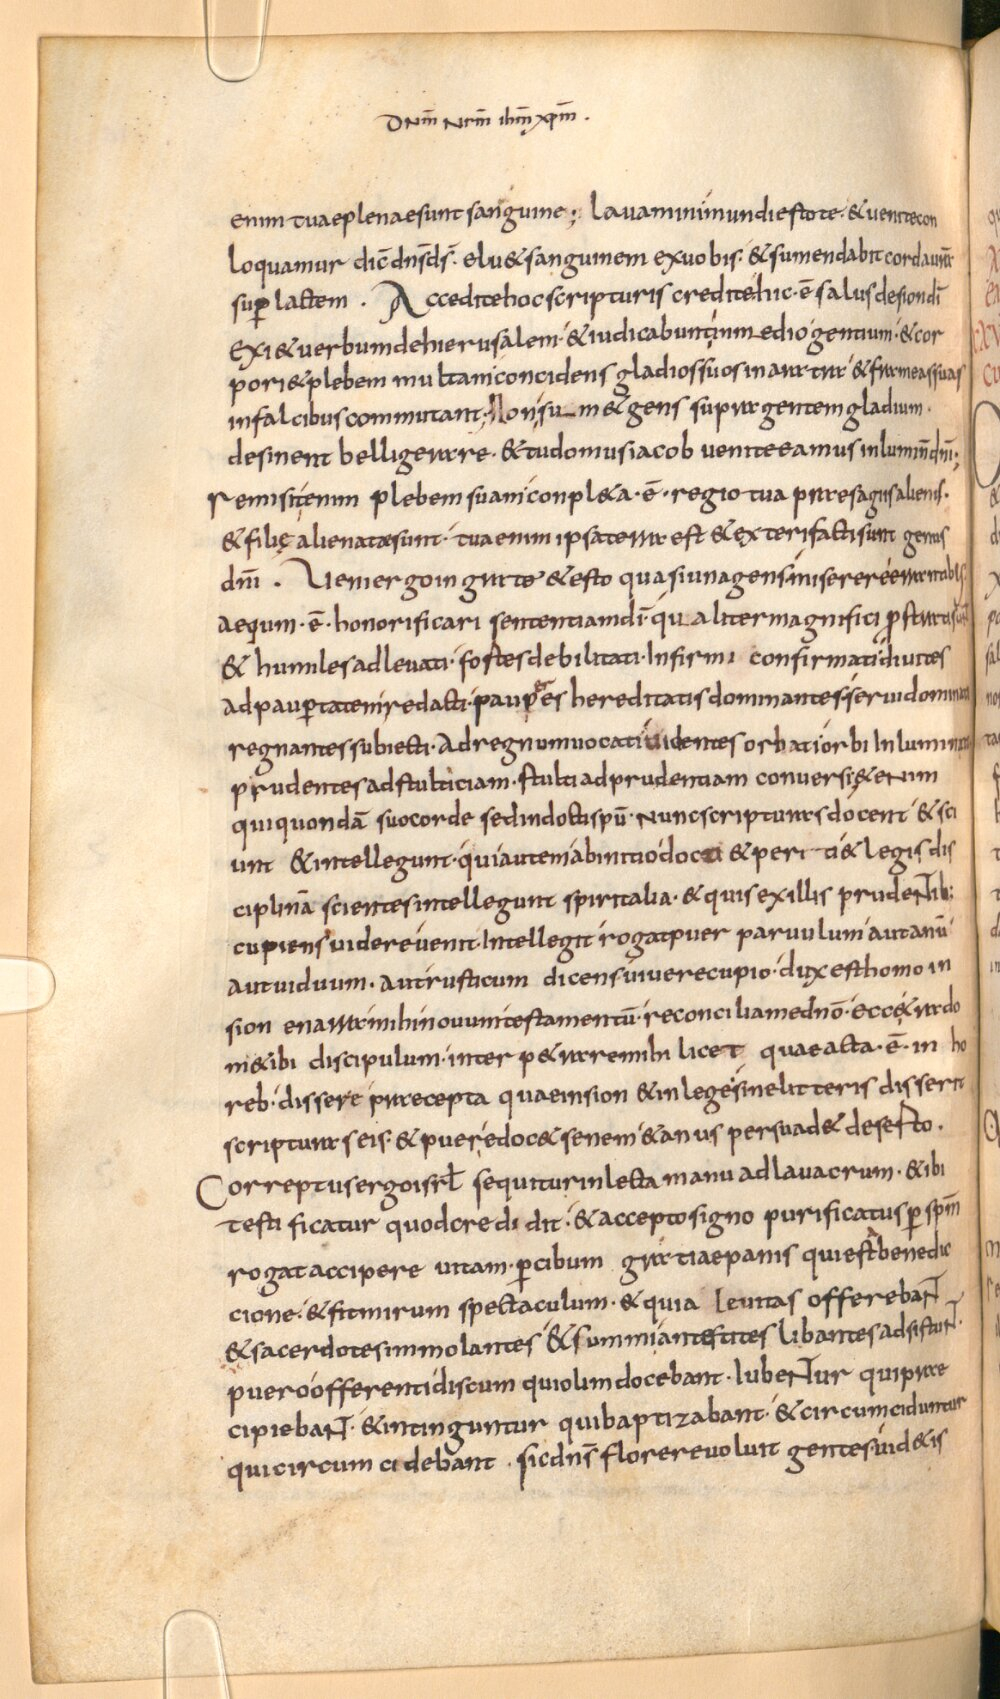 Dnm̄ Nr̄m ihm̄ xpm̄ .
enim tuae plenae sunt sanguine ; lavamini mundi estote · & venite con
loquamur dic̄ dn̄s d̄s · elu& sanguinem ex vobis · & sumendabit corda vr̄a
sup lactem . Accedite hoc scripturis credite hic · ē salus de sion di
exi& uerbum de hierusalem · & iudicabunt in medio gentium · & cor
pori& plebem multam concidens gladios suos in aratra & frameas suas
in falcibus commutant · Non sum& gens supra gentem gladium ·
desinent belligerare · & tu domus iacob venite eamus in lumine dn̄i ;
remisit enim plebem suam conpl&a · ē · regio tua praesagiis alienis ·
& filię alienatae sunt · tua enim ipsa terra est & exteri facti sunt genus
dn̄i . Veni ergo ingrate & esto quasi una gens miserere
Aequm · ē · honorificari sententiam dī qualiter magnifici prostrati sunt
& humiles adlevati · fostes debilitati · Infirmi confirmati diuites
ad paupertatem redacti · paup͡es hereditatis dominantes · serui
regnantes subiecti · Ad regnum uocati uidentes orbati orbi In
prudentes ad stulticiam · stulti ad prudentiam conversi & enim
qui quondā suo corde sed indoctis pū · Nunc scripturas docent & sci
unt & intellegunt · qui autem ab initio docti & periti & legis dis
ciplinā scientes intellegunt spiritalia · & quis ex illis prudentib:
cupiens uidere uenit · Intellegit rogat puer parvulum aut anū
aut viduum · aut rusticum dicens vivere cupio · dux est homo in
sion enarra mihi novum testamentū · reconcilia me dn̄o · ecce
m& ibi discipulum · inter p& rare mihi licet quae acta · ē · in ho
reb · dissere praecepta quae in sion & in lege sine litteris disserit
scripturas eis · & puer edoc& senem & anus persuad& deserto .
Correptus ergo isrł sequitur inlecta manu ad lavacrum · & ibi
testificatur quod credidit · & accepto signo purificatus p spm̄
rogat accipere vitam · p cibum gratiae panis qui est benedic
cione · & fit mirum spectaculum · & quia levitas offerebant
& sacerdotes immolantes & summi antestites libantes adsistunt
puero offerenti discum qui olim docebant · Iubentur qui prae
cipiebant · & intinguntur qui baptizabant · & circumciduntur
qui circumcidebant · sic dn̄s florere voluit gentes vid&is